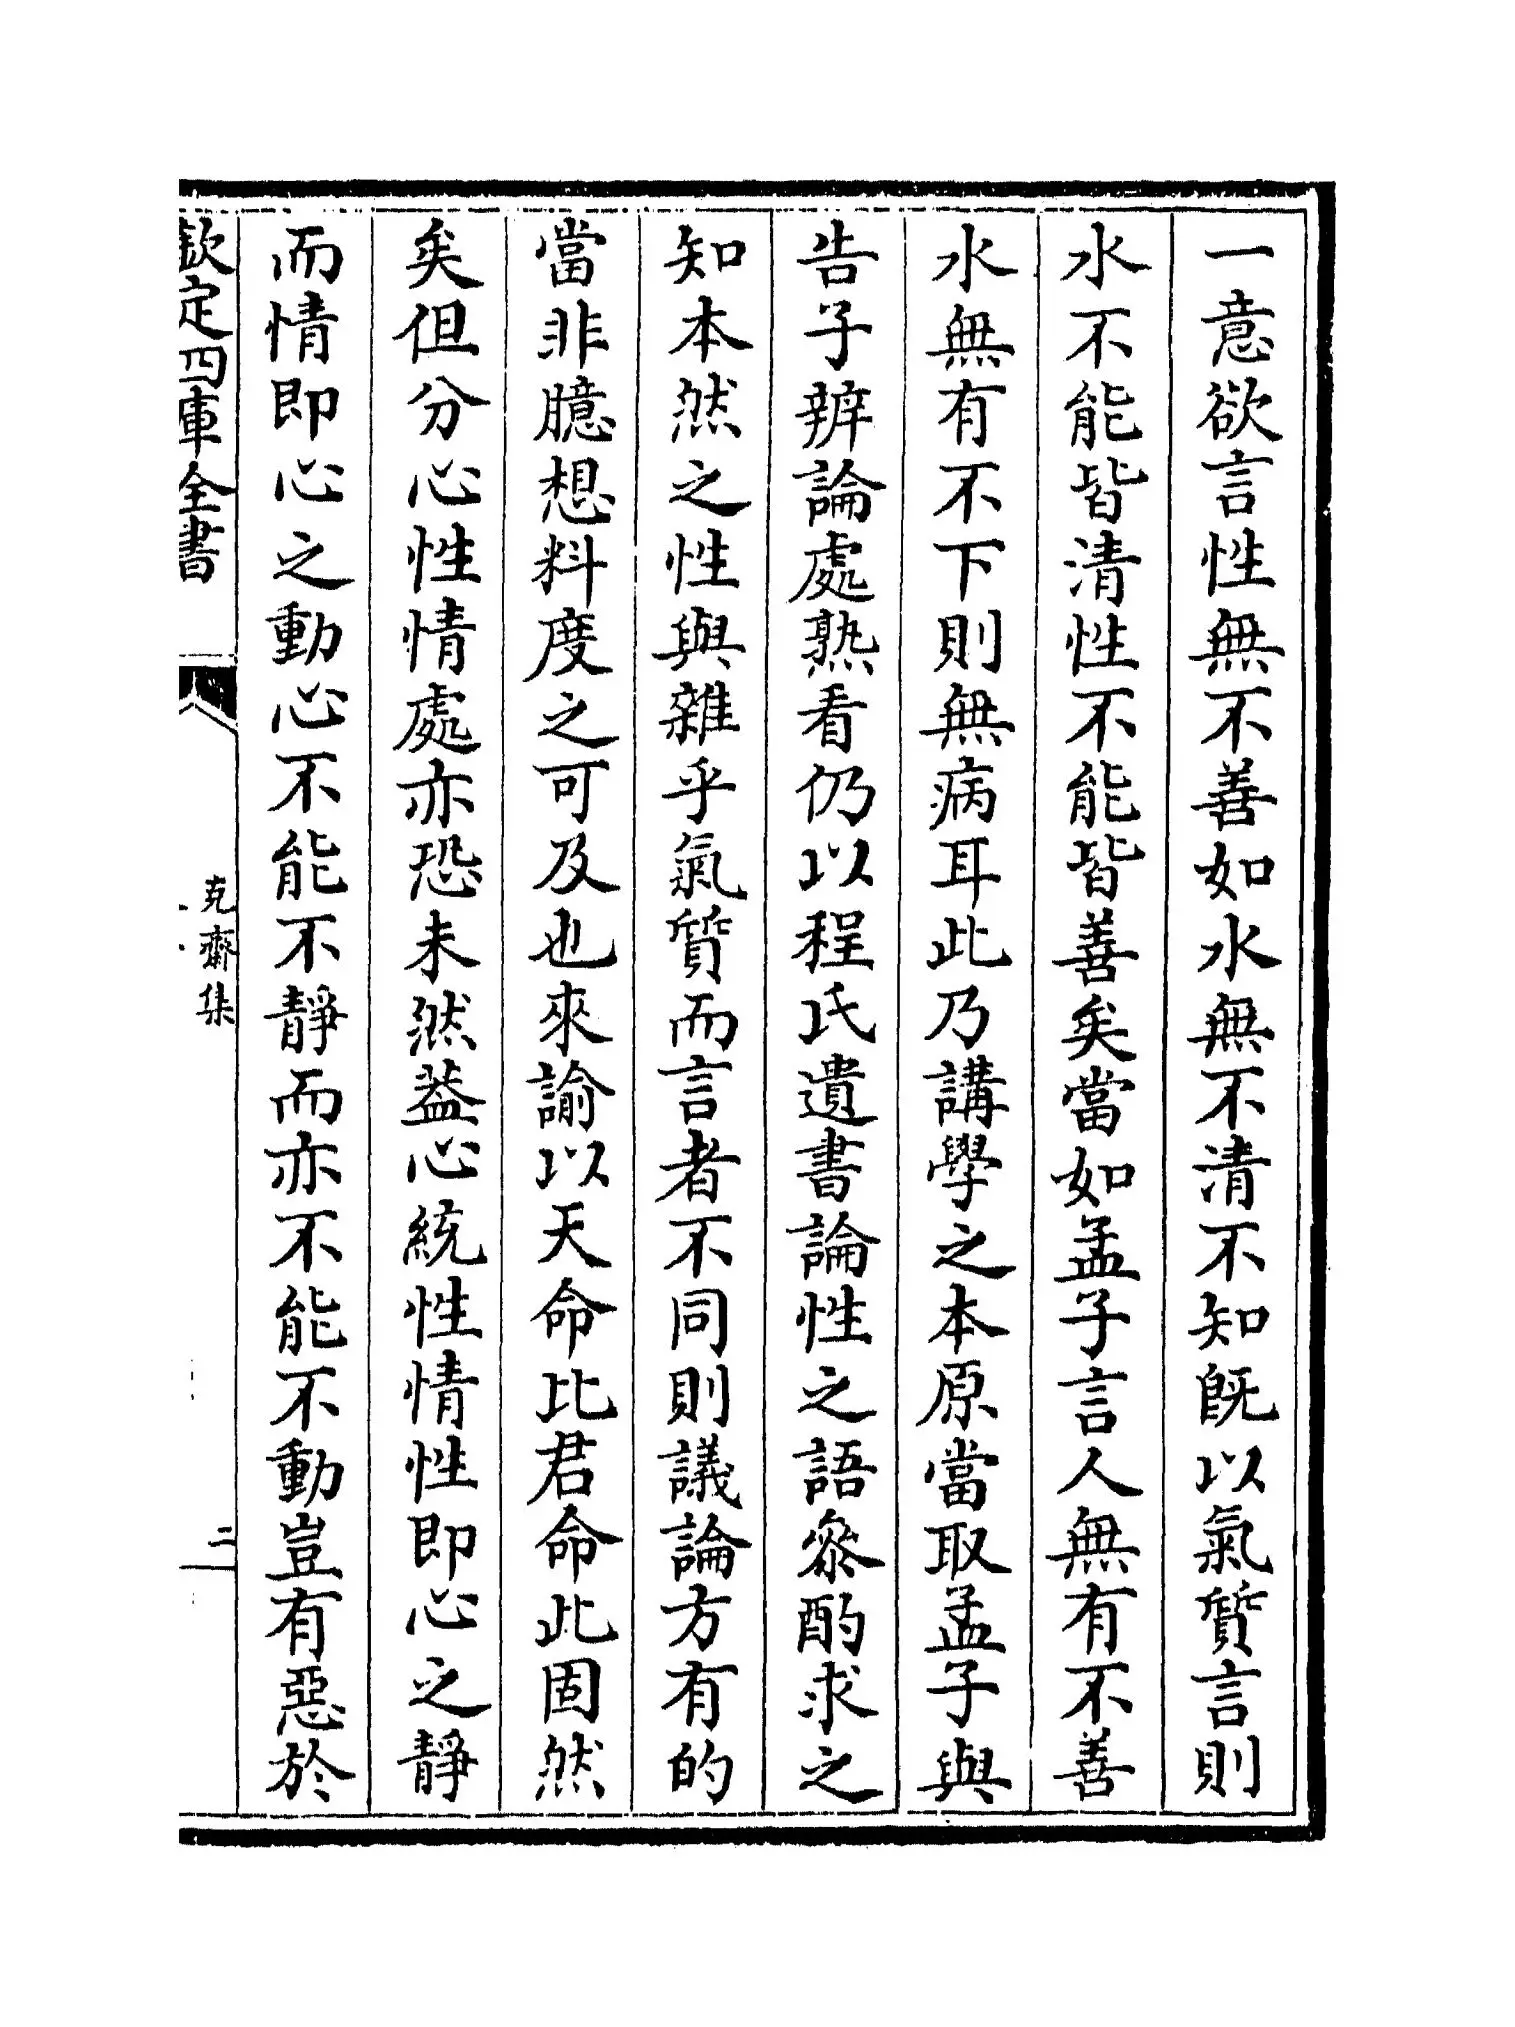 一意欲言性無不善如水無不清不知旣以氣質言則
水不能皆清性不能皆善矣當如孟子言人無有不善
水無有不下則無病耳此乃講學之本原當取孟子與
告子辨論處熟看仍以程氏遺書論性之語叅酌求之
知本然之性與雜乎氣質而言者不同則議論方有的
當非臆想料度之可及也來諭以天命比君命此固然
矣但分心性情處亦恐未然葢心統性情性即心之靜
而情即心之動心不能不靜而亦不能不動豈有惡於
欽定四庫全書
克齋集
二